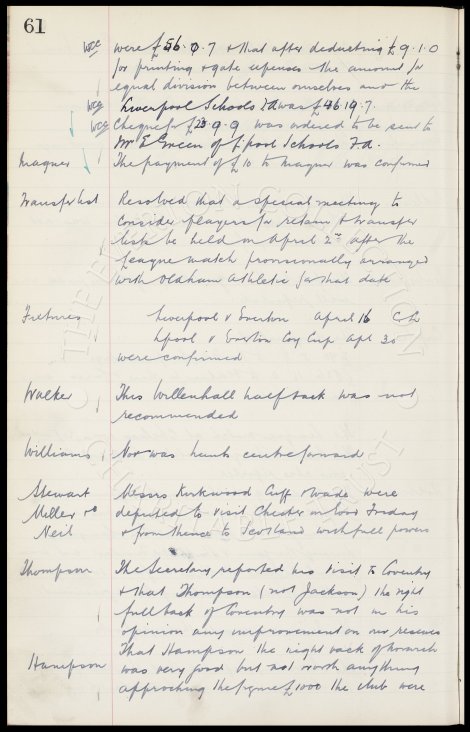 61
were £56.0.7 & that after deducting £9.1.0
for printing & gate expenses the amount for
equal division between ourselves and the
Liverpool Schools Fd was £46 19.7.
Cheque for £23 9.9 was ordered to be sent to
Mr E Green of L'pool Schools Fd.
Magner The payment of £10 to Magner was confirmed
Transfer list Resolved that a special meeting to
consider players for retain & transfer
lists be held on April 2nd after the
League match provisionally arranged
with Oldham Athletic for that date
Fixtures Liverpool v Everton April 16 C L
Lpool v Everton Coy Cup Apl 30
were confirmed
Walker This Willenhall half back was not
recommended
Williams Nor was hunts centre forward
Stewart Messrs Kirkwood Cuff & Wade were
Miller & deputed to visit Chester on Good Friday
Neil & from thence to Scotland with full powers
Thompson The Secretary reported his visit to Coventry
& that Thompson (not Jackson) the right
full back of Coventry was not in his
opinion any improvement on our reserves
That Hampson the right back of Norwich
Hampson was very good but not worth anything
approching the figure £1000 the club were